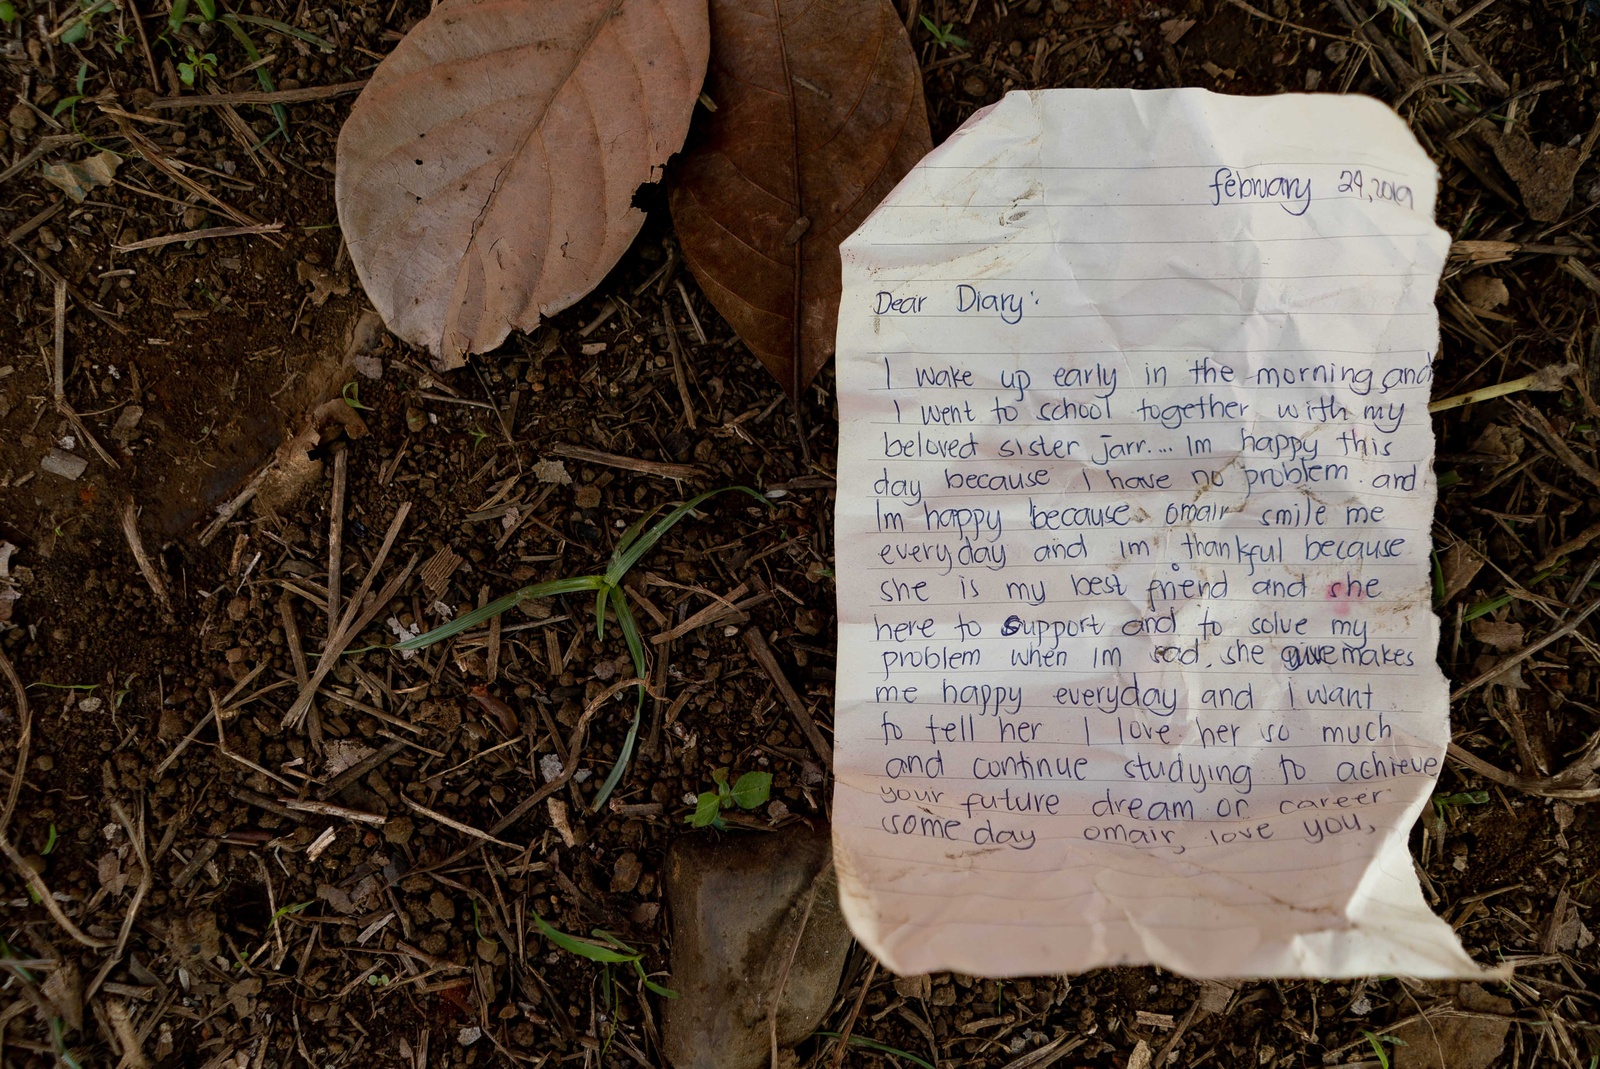 february 24, 2019
Dear Diary:
I wake up early in the morning, and
I went to school together with my
beloved sister jarr.... Im happy this
day because I have no problem. and
Im happy because omair smile me
everyday and im thankful because
she is my best friend and she
here to support and to solve my
problem when im sad, she makes
me happy everyday and i want
to tell her I love her so much
and continue studying to achieve
your future dream or career
some day omair, love you,